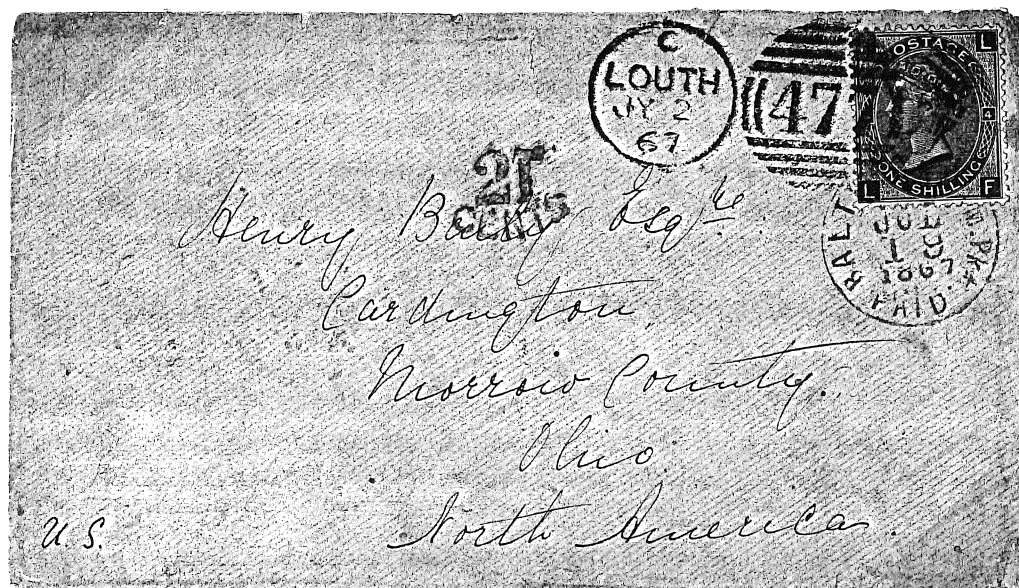 C
LOUTH
JY 2
67
47
POSTAGE
L
4
ONE SHILLING
L F
21
CENTS
BALT
W. PKt
JUL
1867
PAID.
Henry Esqre
Cardington,
Morrow County.
Ohio
North America
U. S.